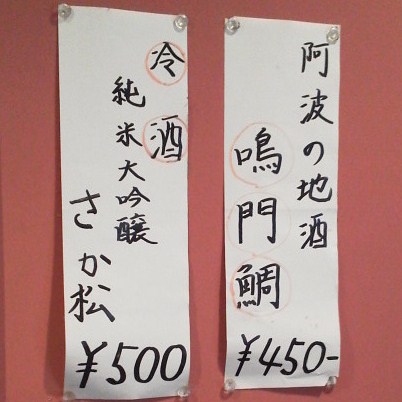 阿波の地酒
鳴門鯛
¥450-
冷酒
純米大吟醸
さか松
¥500